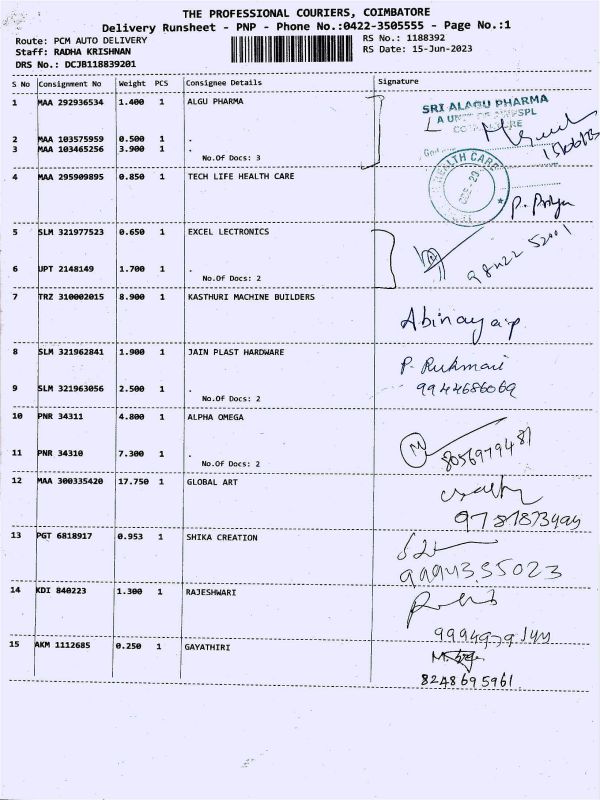 THE PROFESSIONAL COURIERS, COIMBATORE
Delivery Runsheet - PNP - Phone No.:0422-3505555 - Page No.:1
Route: PCM AUTO DELIVERY
Staff: RADHA KRISHNAN
DRS No.: DCJB118839201
RS No.: 1188392
RS Date: 15-Jun-2023
S No Consignment No Weight PCS Consignee Details Signature
1 MAA 292936534 1.400 1 ALGU PHARMA
SRI ALAGU PHARMA
2 MAA 103575959 0.500 1 .
3 MAA 103465256 3.900 1 .
No.Of Docs: 3
4 MAA 295909895 0.850 1 TECH LIFE HEALTH CARE
HEALTH CARE
P. Priya
5 SLM 321977523 0.650 1 EXCEL LECTRONICS
98422 52001
6 UPT 2148149 1.700 1 .
No.Of Docs: 2
7 TRZ 310002015 8.900 1 KASTHURI MACHINE BUILDERS
Abinaya.p
8 SLM 321962841 1.900 1 JAIN PLAST HARDWARE
P. Rukmani
9 SLM 321963056 2.500 1 .
9944686069
No.Of Docs: 2
10 PNR 34311 4.800 1 ALPHA OMEGA
11 PNR 34310 7.300 1 .
8056979481
No.Of Docs: 2
12 MAA 300335420 17.750 1 GLOBAL ART
13 PGT 6818917 0.953 1 SHIKA CREATION
9994335023
14 KDI 840223 1.300 1 RAJESHWARI
15 AKM 1112685 0.250 1 GAYATHIRI
8248695961